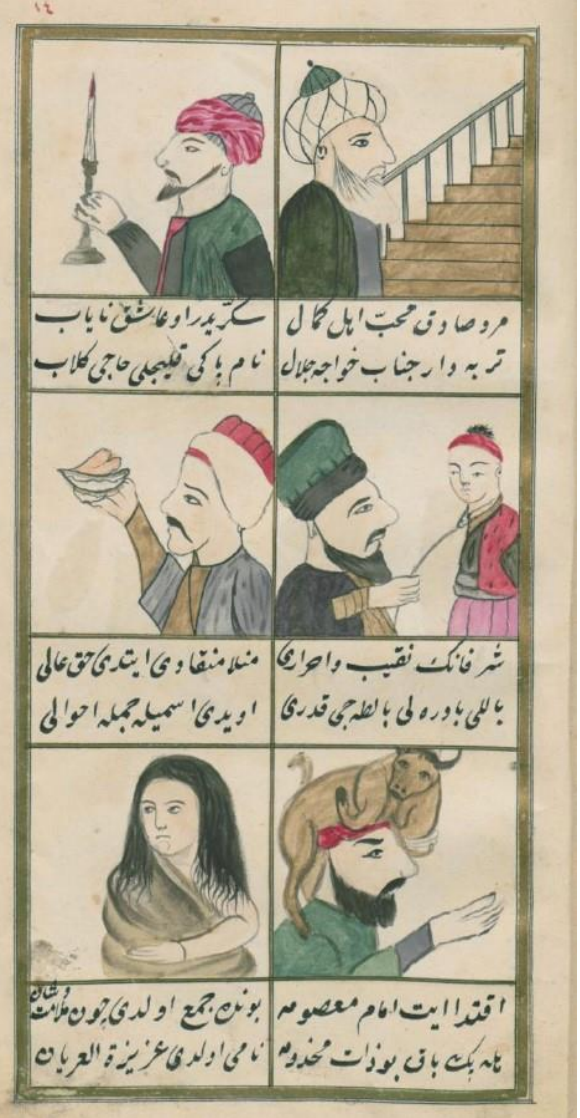 ١٤
مرد صادق محبّ اهل كمال
تربه دار جناب خواجه جلال
او عاشق ناياب
نام پاكى قليجلى حاجى كلاب
شرفانك نقيب واحرارى
باللى بادره لى بالطه جى قدرى
منلا منقادى ايتدى حق عالى
اويدى اسميله جمله احوالى
اقتدا ايت امام معصومه
باق بو ذات مخدومه
بونده جمع اولدى چون ملامت وشان
نامى اولدى عزيزة العريان